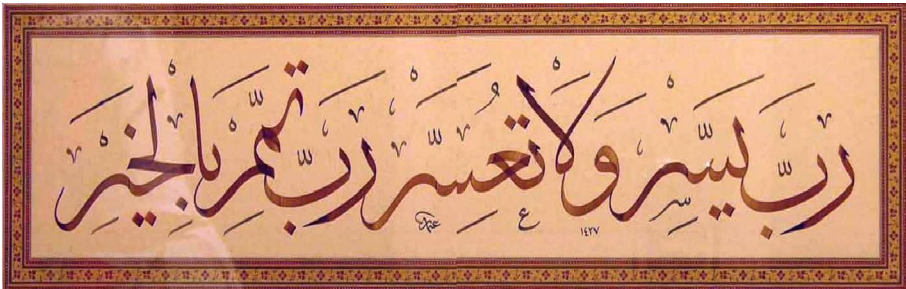 رَبِّ يَسِّرْ وَلَا تُعَسِّرْ رَبِّ تَمِّمْ بِالْخَيْرِ
١٤٢٧